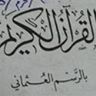 القرآن الكريم
بالرسم العثماني